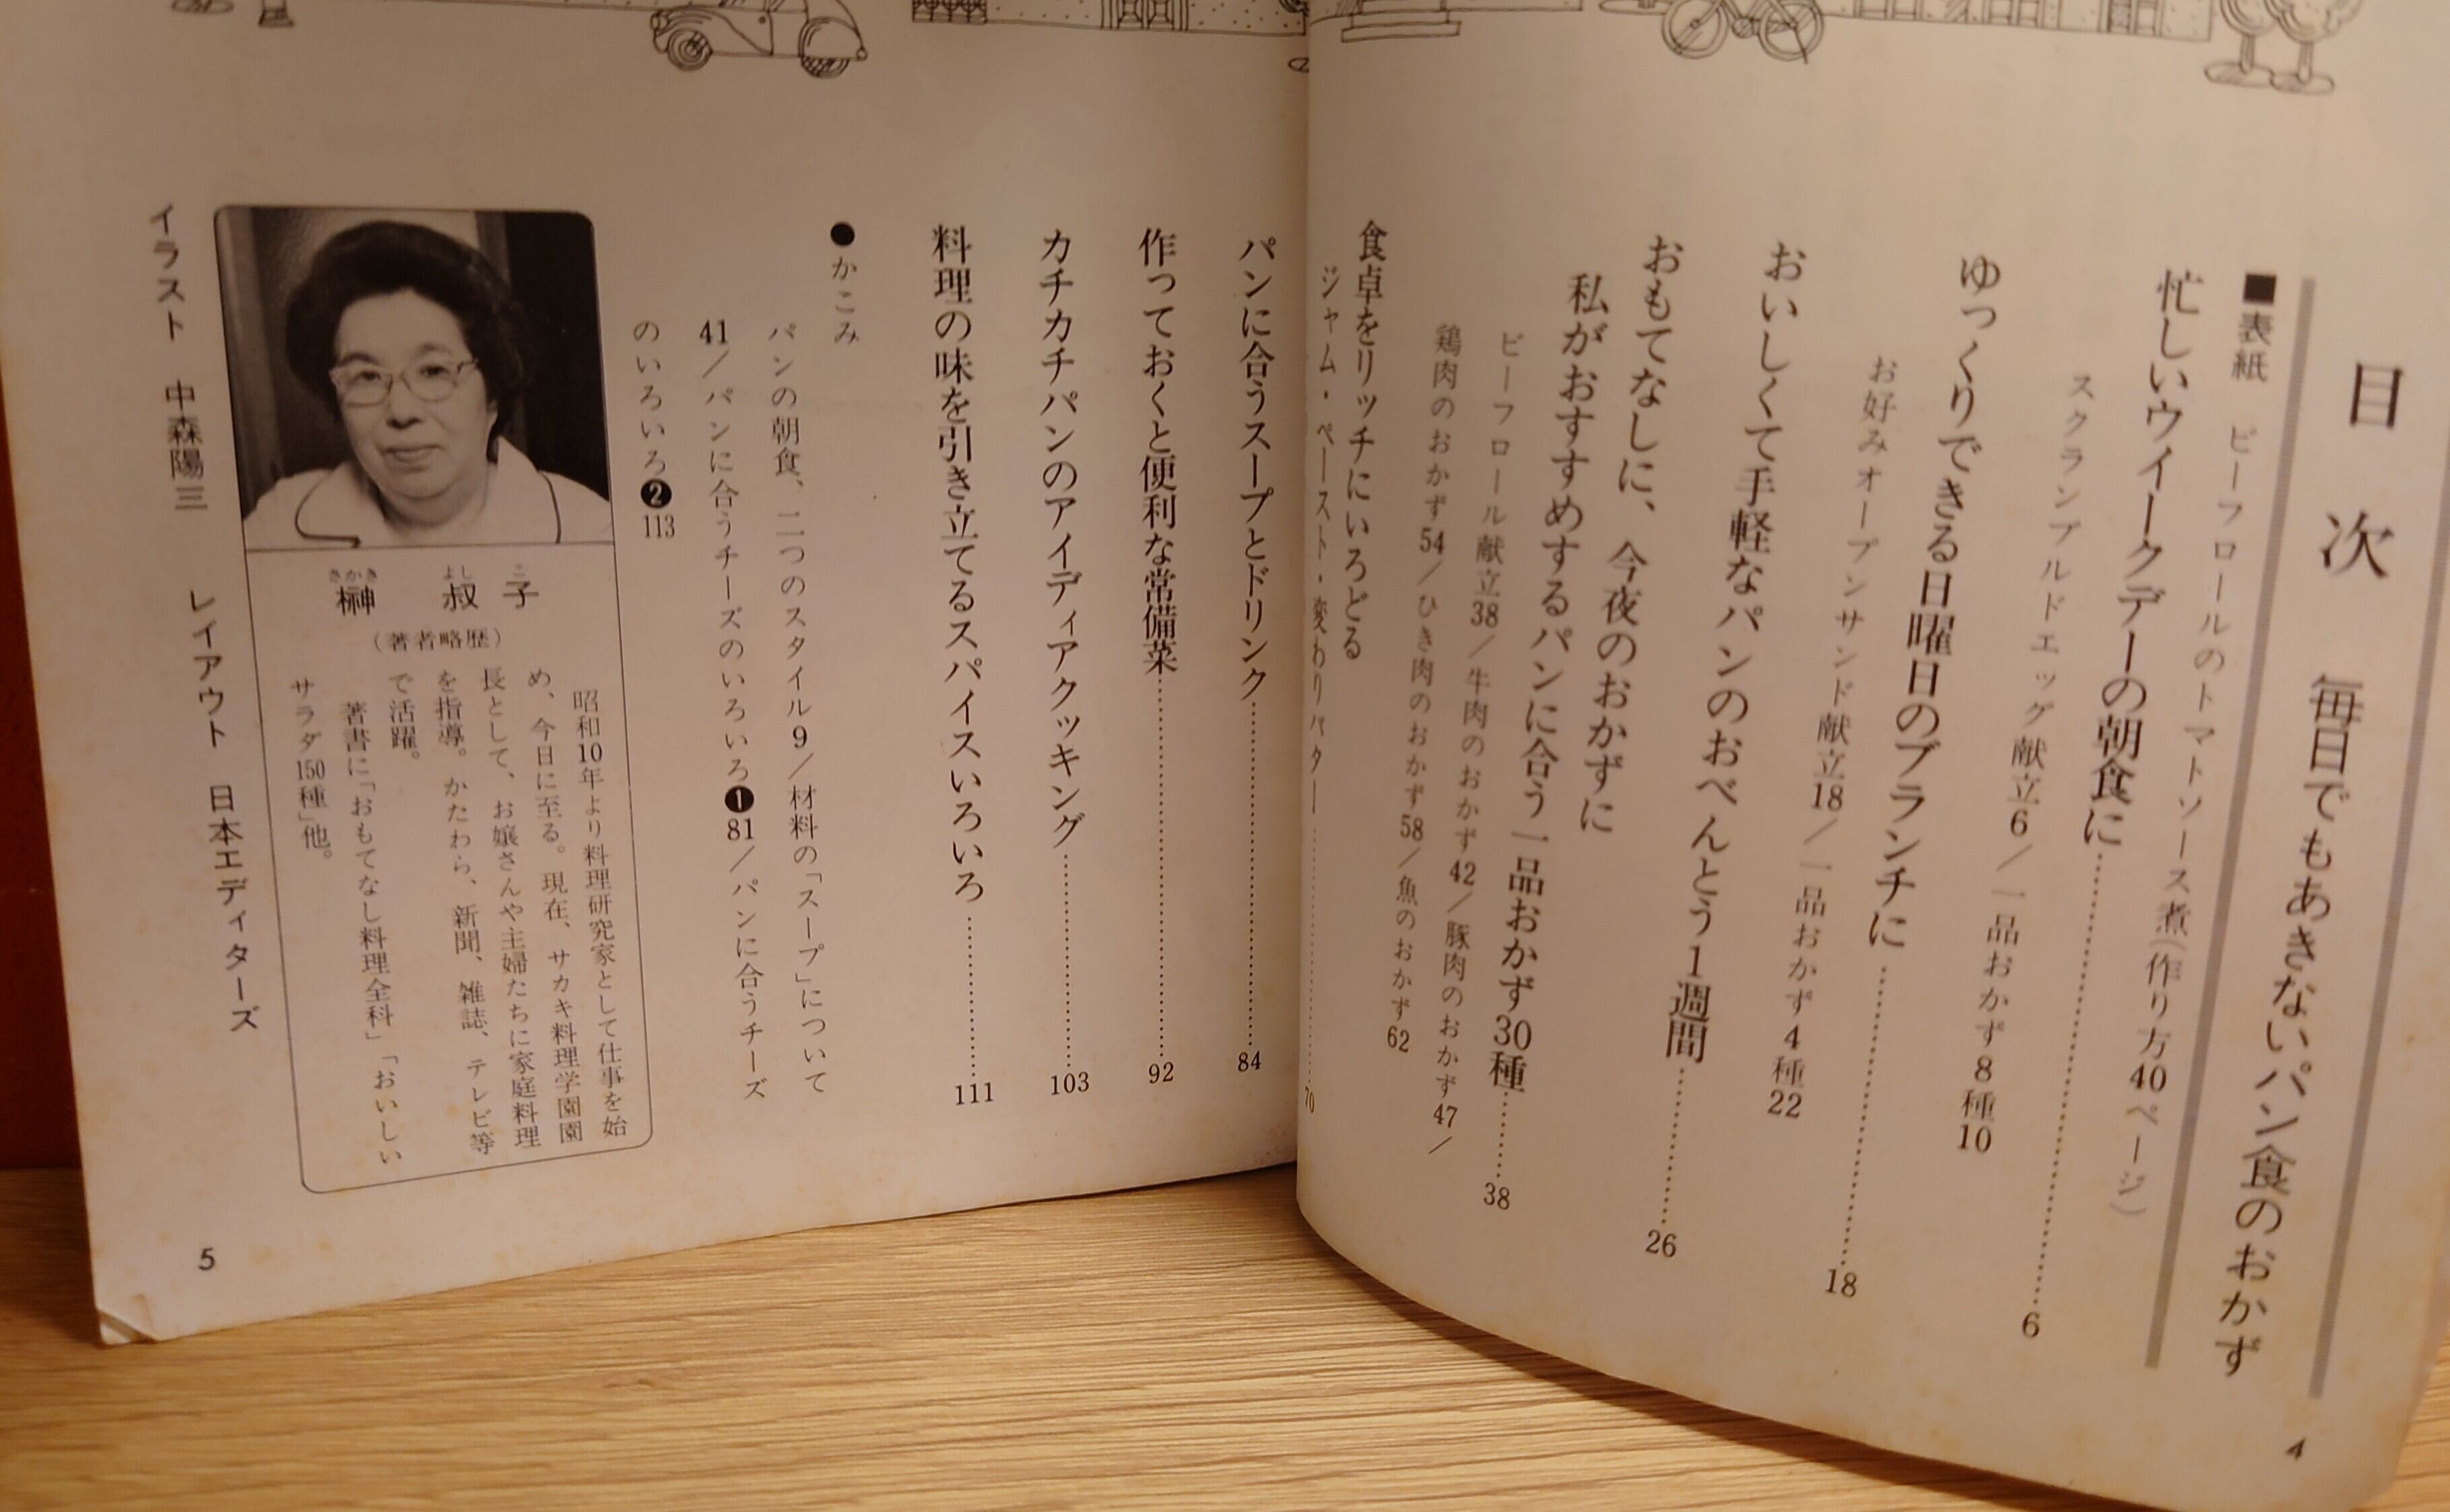 目次 毎日でもあきないパン食のおかず
■表紙 ビーフロールのトマトソース煮(作り方40ページ)
忙しいウイークデーの朝食に……6
スクランブルドエッグ献立6/一品おかず8種10
ゆっくりできる日曜日のブランチに……18
お好みオープンサンド献立18/一品おかず4種22
おいしくて手軽なパンのおべんとう1週間……26
おもてなしに、今夜のおかずに
私がおすすめするパンに合う一品おかず30種……38
ビーフロール献立38/牛肉のおかず42/豚肉のおかず47/
鶏肉のおかず54/ひき肉のおかず58/魚のおかず62
食卓をリッチにいろどる
ジャム・ペースト・変わりバター……70
4
パンに合うスープとドリンク……84
作っておくと便利な常備菜……92
カチカチパンのアイディアクッキング……103
料理の味を引き立てるスパイスいろいろ……111
●かこみ
パンの朝食、二つのスタイル9/材料の「スープ」について
41/パンに合うチーズのいろいろ❶81/パンに合うチーズ
のいろいろ❷113
榊叔子
さかきよしこ
(著者略歴)
昭和10年より料理研究家として仕事を始
め、今日に至る。現在、サカキ料理学園園
長として、お嬢さんや主婦たちに家庭料理
を指導。かたわら、新聞、雑誌、テレビ等
で活躍。
著書に「おもてなし料理全科」「おいしい
サラダ150種」他。
イラスト 中森陽三 レイアウト 日本エディターズ
5